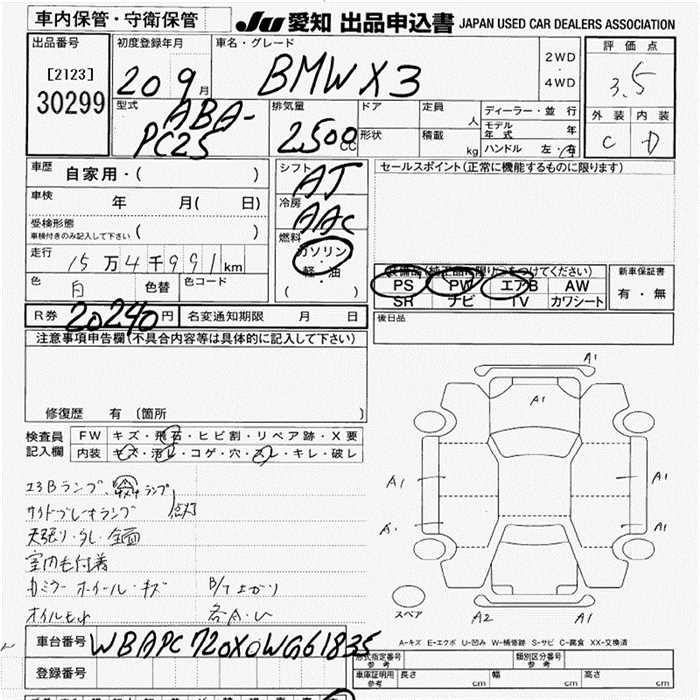 車内保管・守衛保管
JU 愛知 出品申込書 JAPAN USED CAR DEALERS ASSOCIATION
出品番号
[2123]
30299
初度登録年月
20 9月
車名・グレード
BMW X3
2WD
・
4WD
評価点
3.5
外装 内装
C D
型式
ABA-
PC25
排気量
2,500cc
ドア
形状
定員 人
積載 kg
ディーラー・並行
モデル年式 年
ハンドル 左・右
車歴 自家用・( )
車検 年 月( 日)
受検形態
車検付きのみ記入して下さい ( )
走行 15万4千991km
色 白 色替 色コード
シフト
AT
冷房
AAC
燃料
ガソリン
・
軽・油
( )
セールスポイント(正常に機能するものに限ります)
装備品(純正品に限り○をつけてください)
PS PW エアB AW
SR ナビ TV カワシート
新車保証書
有・無
R券 20240円 名変通知期限 月 日
後日品
注意事項申告欄(不具合内容等は具体的に記入して下さい)
修復歴 有 〔箇所 〕
検査員
記入欄
FW キズ・飛石・ヒビ割・リペア跡・X要
内装 キズ・汚レ・コゲ・穴・スレ・キレ・破レ
エアBランプ、 ランプ
サイドブレーキランプ 点灯
天張り・タレ・全面
室内毛付着
カミラー ホイール・キズ
オイルモレ
A1
A1
A1
A1
A1
A1
A2
A1
スペア
A-キズ E-エクボ U-凹み W-補修跡 S-サビ C-腐食 XX-交換済
車台番号 WBAPC720X0WG61835
登録番号
形式指定番号
参考
類別区分番号
参考
車庫証明用
参考
長さ cm 幅 cm 高さ cm